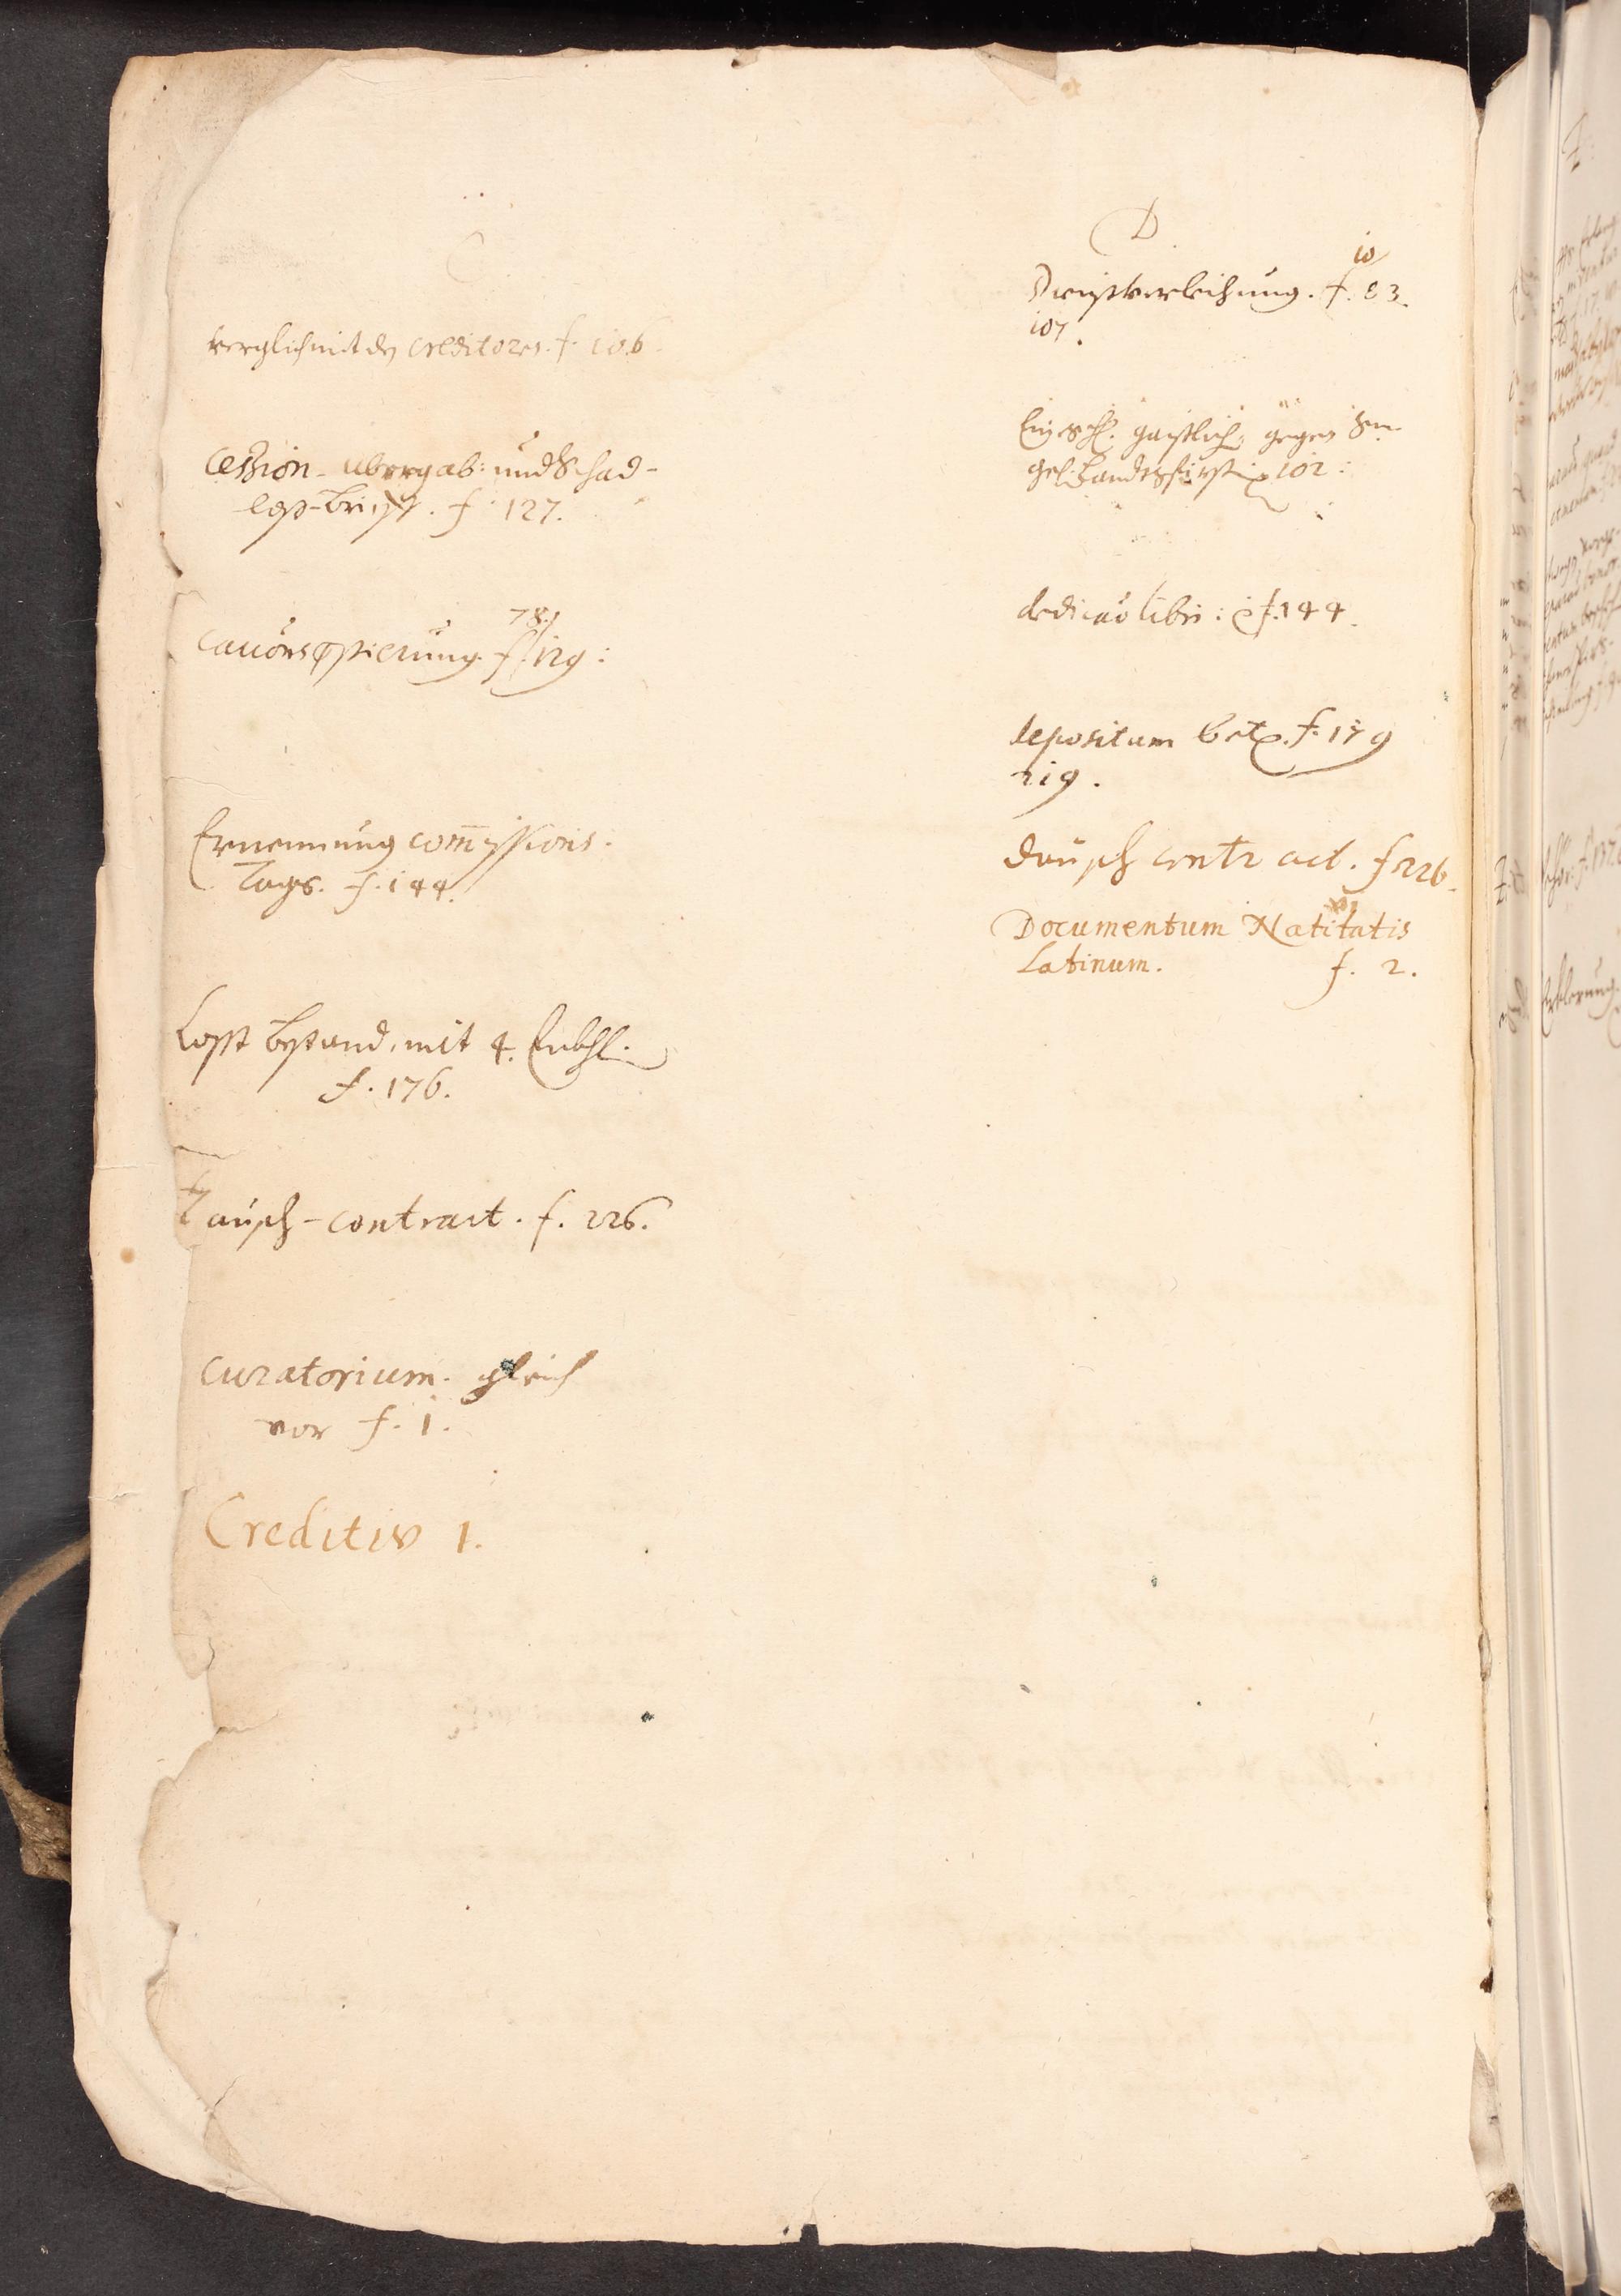 C
verglich mit den creditores. f. 106.
Cession- ubergab: und Schad-
loß-brieff. f. 127.
78.
cautionsCaßierung. f. 129:
Ernennung commissions.
Tags. f. 144.
bestand. mit 4.
f. 176.
Tausch-contract. f. 226.
curatorium. gleich
vor f. 1.
Creditiv 1.
D.
10
Dienstverleihung. f. 83.
107.
gaistlich: gegen
Landtsfürst: 102:
dedicatio libri: f. 144.
depositum betr. f. 179
219.
Dausch contract. f 226.
vi
Documentum Natitatis
Latinum. f. 2.